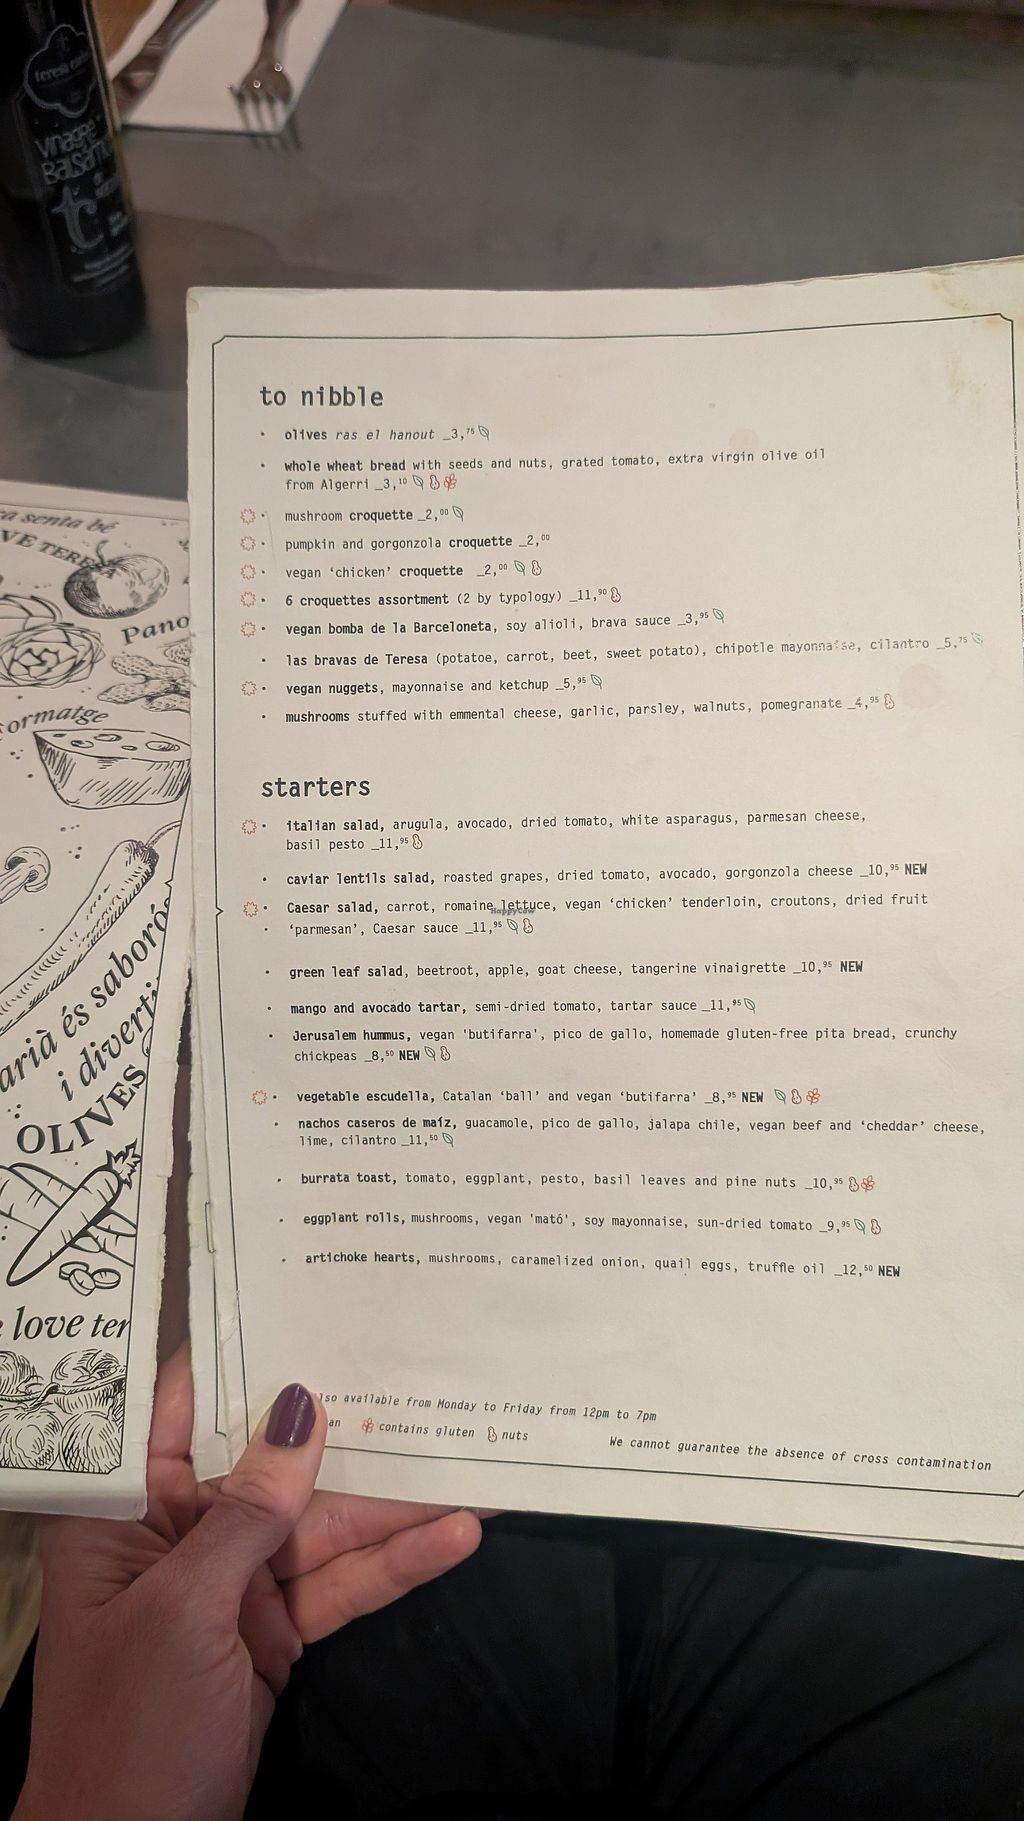 teresa
vinagre
Balsàm
tc
to nibble
• olives ras el hanout _3,75
• whole wheat bread with seeds and nuts, grated tomato, extra virgin olive oil
from Algerri _3,10
• mushroom croquette _2,00
• pumpkin and gorgonzola croquette _2,00
• vegan ‘chicken’ croquette _2,00
• 6 croquettes assortment (2 by typology) _11,90
• vegan bomba de la Barceloneta, soy alioli, brava sauce _3,95
• las bravas de Teresa (potatoe, carrot, beet, sweet potato), chipotle mayonnaise, cilantro _5,75
• vegan nuggets, mayonnaise and ketchup _5,95
• mushrooms stuffed with emmental cheese, garlic, parsley, walnuts, pomegranate _4,95
starters
• italian salad, arugula, avocado, dried tomato, white asparagus, parmesan cheese,
basil pesto _11,95
• caviar lentils salad, roasted grapes, dried tomato, avocado, gorgonzola cheese _10,95 NEW
• Caesar salad, carrot, romaine lettuce, vegan ‘chicken’ tenderloin, croutons, dried fruit
HappyCow
• ‘parmesan’, Caesar sauce _11,95
• green leaf salad, beetroot, apple, goat cheese, tangerine vinaigrette _10,95 NEW
• mango and avocado tartar, semi-dried tomato, tartar sauce _11,95
• Jerusalem hummus, vegan 'butifarra', pico de gallo, homemade gluten-free pita bread, crunchy
chickpeas _8,50 NEW
• vegetable escudella, Catalan ‘ball’ and vegan ‘butifarra’ _8,95 NEW
• nachos caseros de maíz, guacamole, pico de gallo, jalapa chile, vegan beef and ‘cheddar’ cheese,
lime, cilantro _11,50
• burrata toast, tomato, eggplant, pesto, basil leaves and pine nuts _10,95
• eggplant rolls, mushrooms, vegan 'mató', soy mayonnaise, sun-dried tomato _9,95
• artichoke hearts, mushrooms, caramelized onion, quail eggs, truffle oil _12,50 NEW
lso available from Monday to Friday from 12pm to 7pm
an contains gluten nuts
We cannot guarantee the absence of cross contamination
a senta bé
VE TERE
Pano
ormatge
arià és saborós
i diverti
OLIVES
love ter